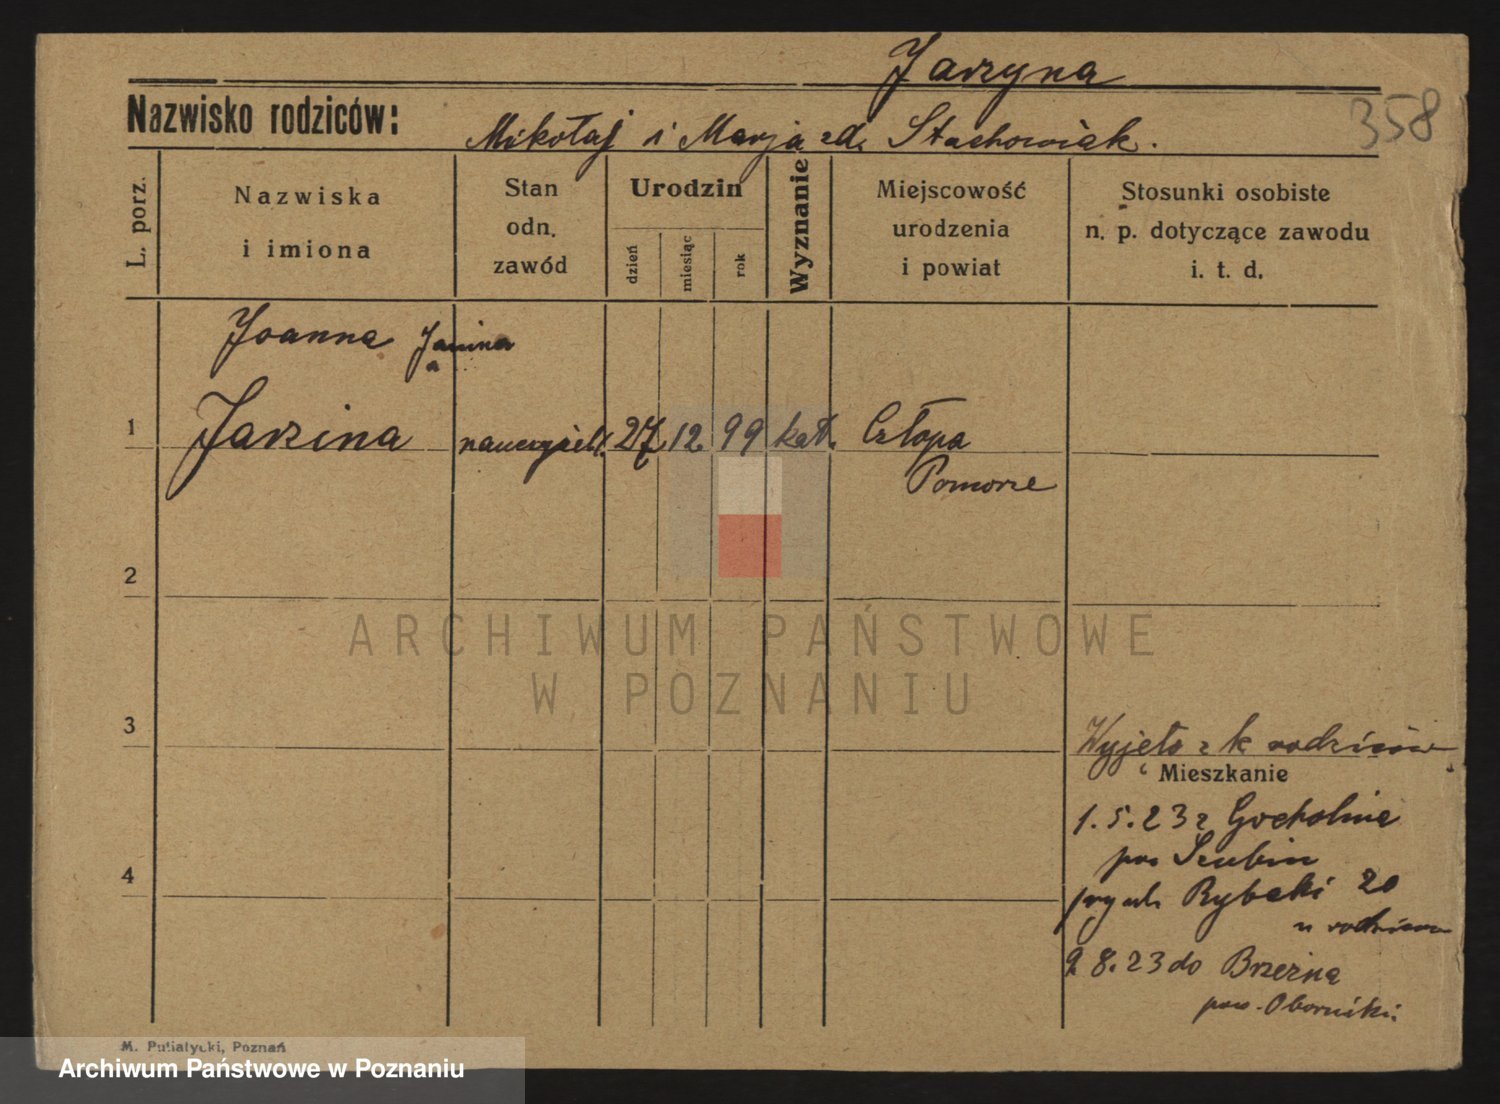 Jarzyna
358
Nazwisko rodziców: Mikołaj i Marja zd. Stachowiak.
L. porz.
Nazwiska
i imiona
Stan
odn.
zawód
Urodzin
dzień
miesiąc
rok
Wyznanie
Miejscowość
urodzenia
i powiat
Stosunki osobiste
n. p. dotyczące zawodu
i. t. d.
Joanna Janina
1 Jarzina nauczyciel. 27 12 99 kat. Człopa
Pomorze
2
ARCHIWUM PAŃSTWOWE
W POZNANIU
3
Wyjęto z k rodziców
Mieszkanie
1.5.23 z Gocholine
pow Szubin
4
przyb. Rybaki 20
u rodziców
9 8.23 do Brzezna
pow. Oborniki
M. Putiatycki, Poznań
Archiwum Państwowe w Poznaniu